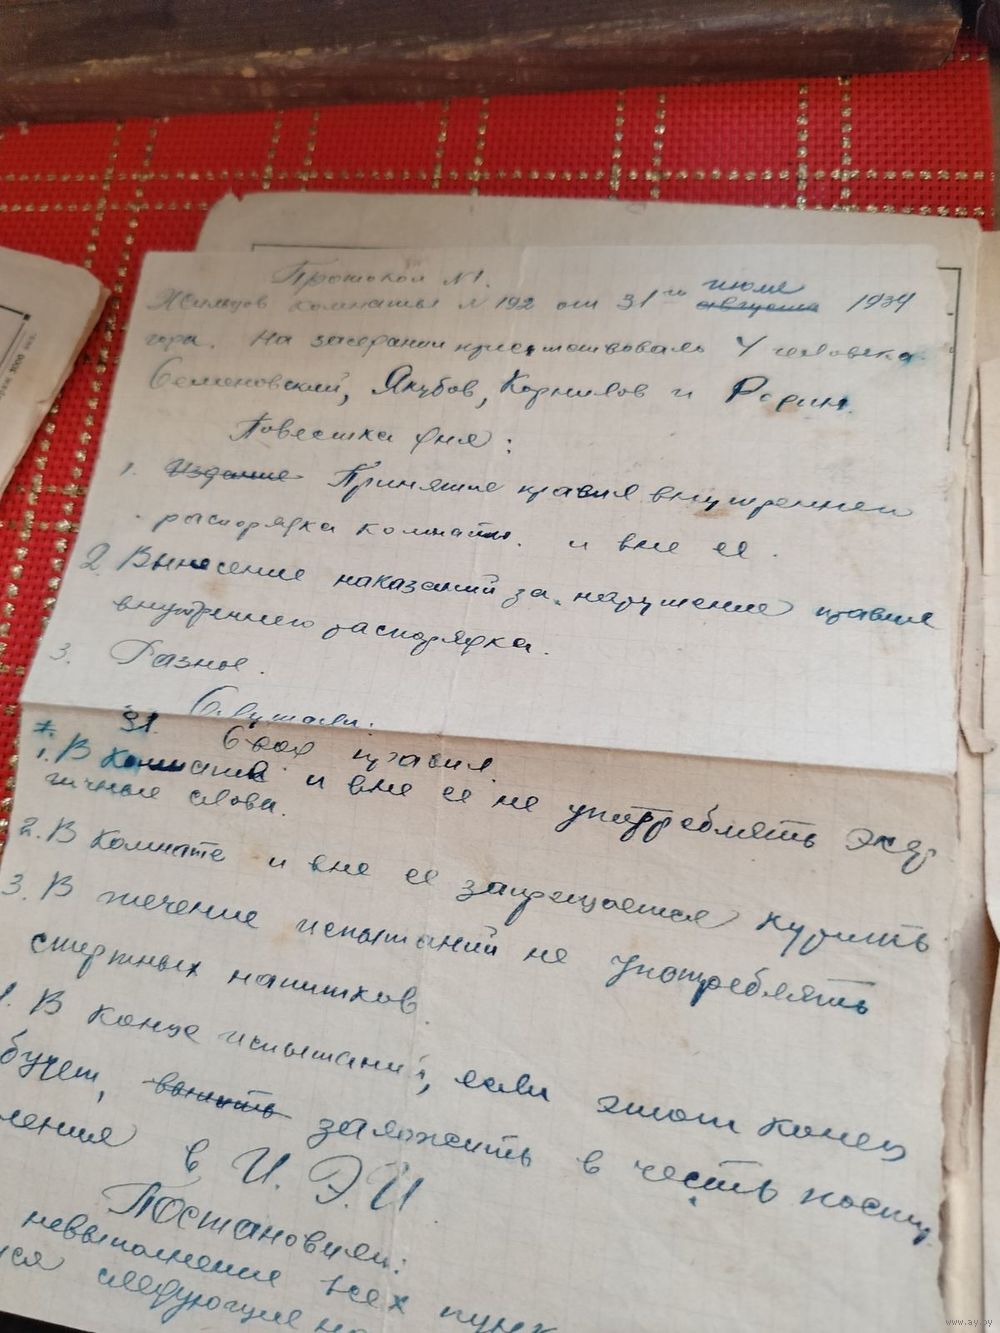 Протокол №1.
Жильцов комнаты №192 от 31го августа июля 1934
года. На заседании присутствовало 4 человека
Семеновский, Якубов, Корнилов и Родин.
Повестка дня:
1. Издание Принятие правил внутреннего
распорядка комнаты и вне ее.
2. Вынесение наказаний за нарушение правил
внутреннего распорядка.
3. Разное.
Слушали:
Свод правил.
1. В комнате и вне ее не употреблять
слова.
2. В комнате и вне ее запрещается курить
3. В течение испытаний не употреблять
спиртных напитков
В конце испытаний, если этот конец
будет, выпить заложить в честь поступ
ления в И.Э.И
Постановили:
невыполнение всех пунк
ся следующие на
www.ay.by